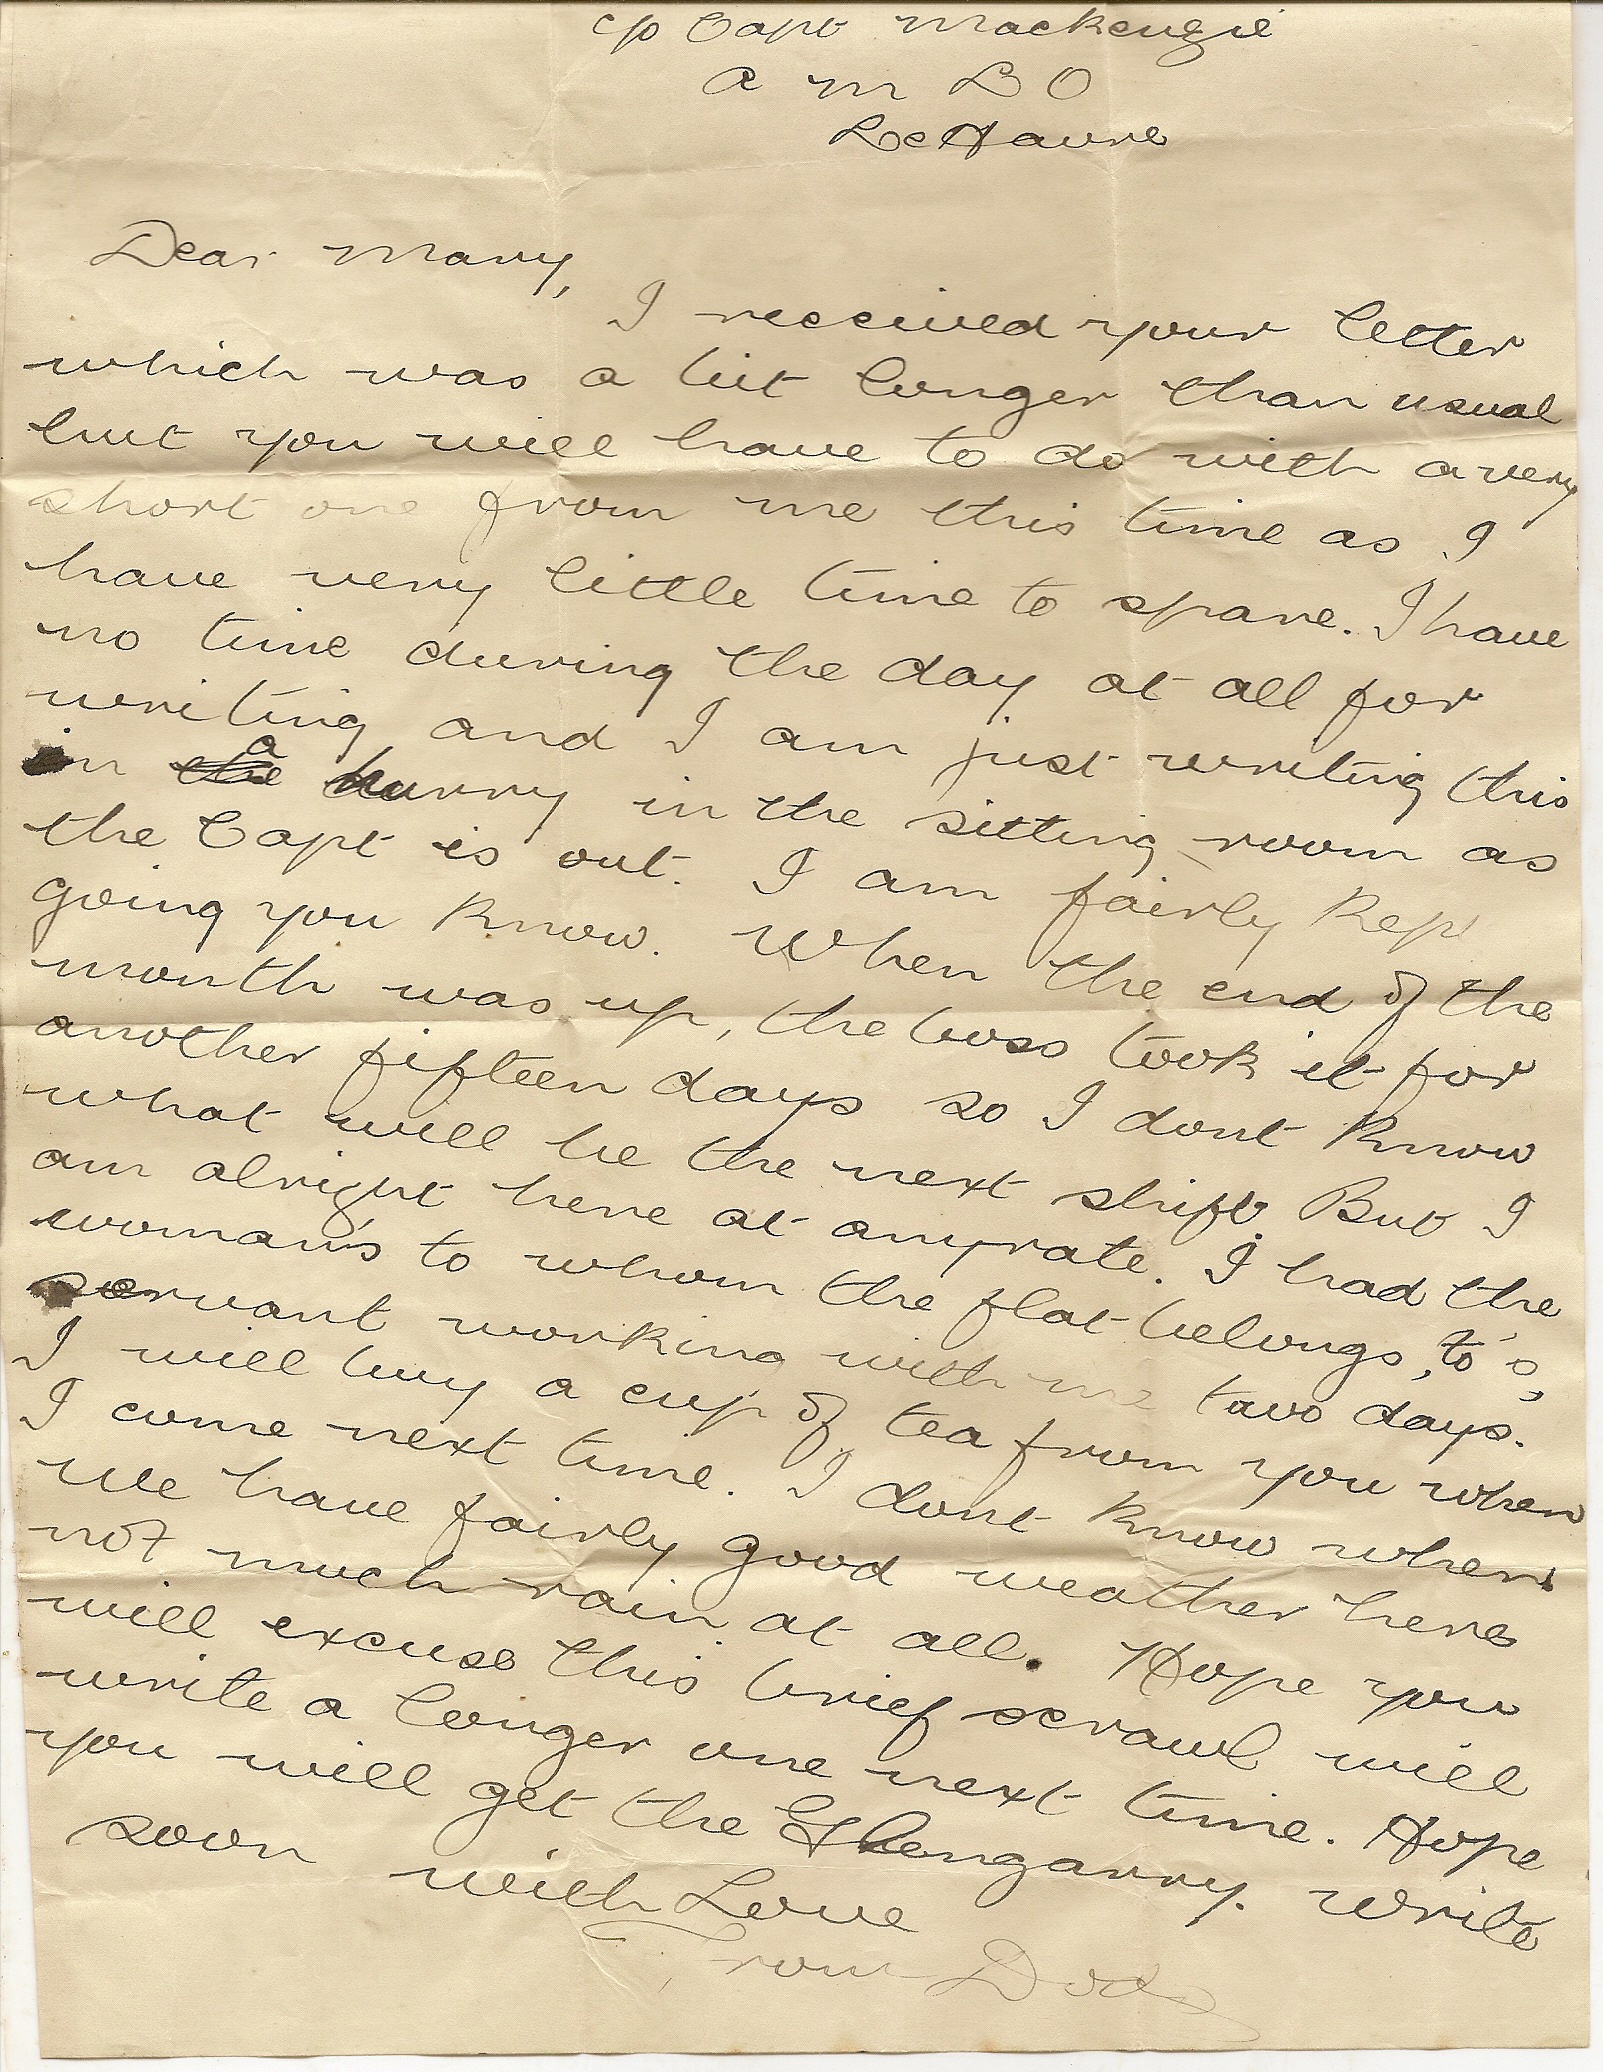 c/o Capt Mackenzie
A M L O
Le Havre
Dear Mary,
I received your letter
which was a bit longer than usual
but you will have to do with a very
short one from me this time as I
have very little time to spare. I have
no time during the day at all for
writing and I am just writing this
in the a hurry in the sitting room as
the Capt is out. I am fairly kept
going you know. When the end of the
month was up, the boss took it for
another fifteen days so I dont know
what will be the next shift But I
am alright here at anyrate. I had the
woman's to whom the flat belongs, to's,
servant working with me two days.
I will buy a cup of tea from you when
I come next time. I dont know when
We have fairly good weather here
not much rain at all. Hope you
will excuse this brief scrawl will
write a longer one next time. Hope
you will get the Glengarry. Write
soon with Love
From Dod